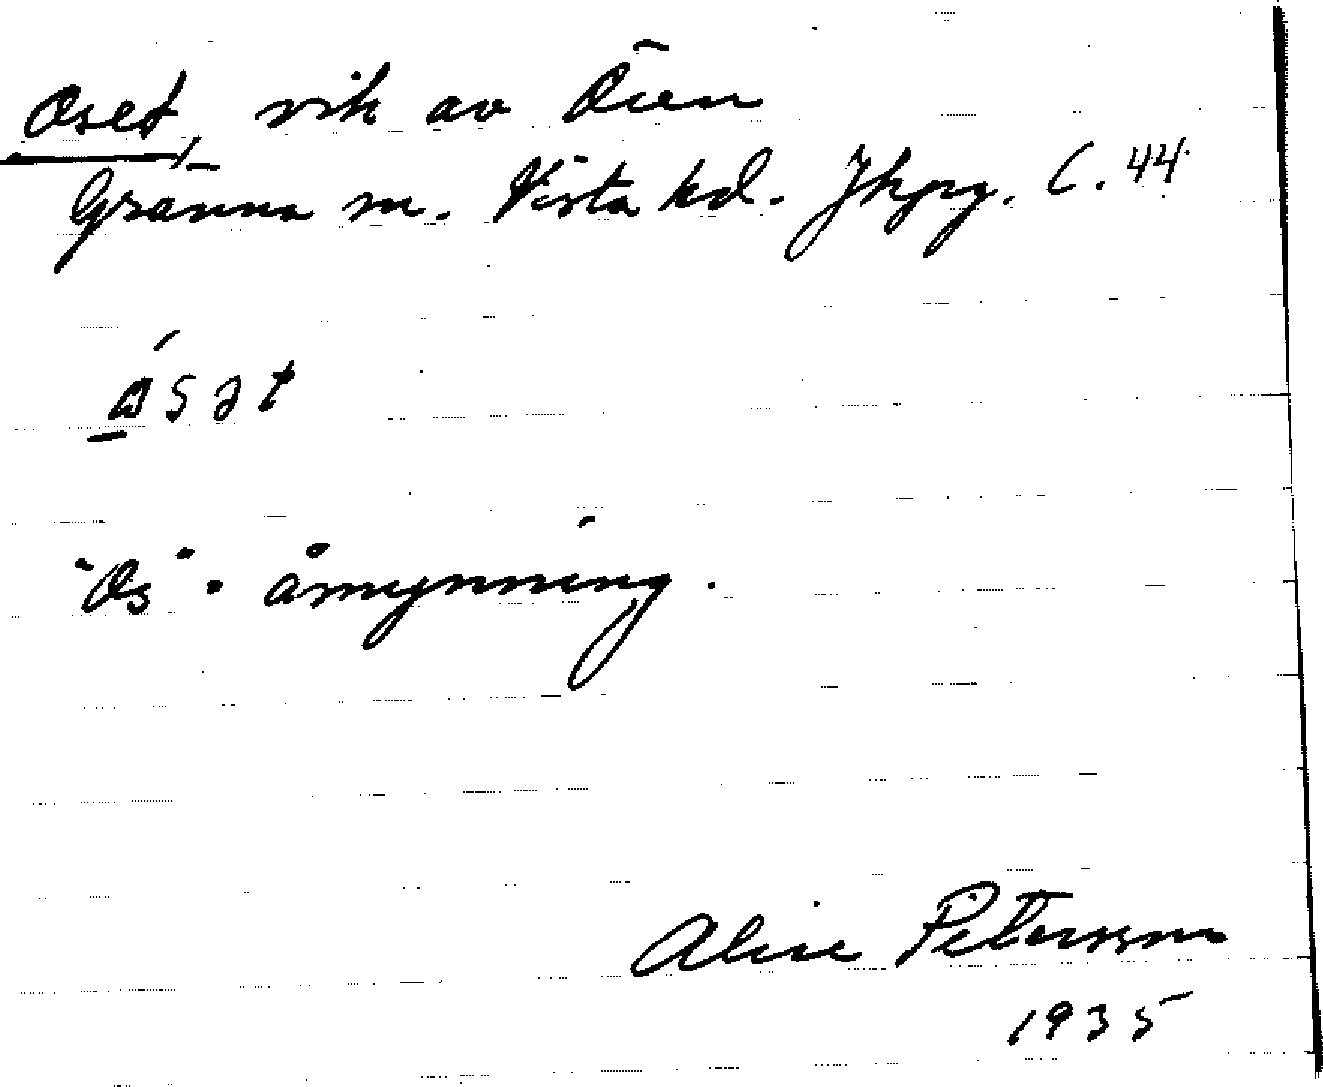 Oset, vik av Ören
Gränna sn. Vista hd. Jkpg. C. 44
ósət
"Os" = åmynning.
Alice Petersson
1935